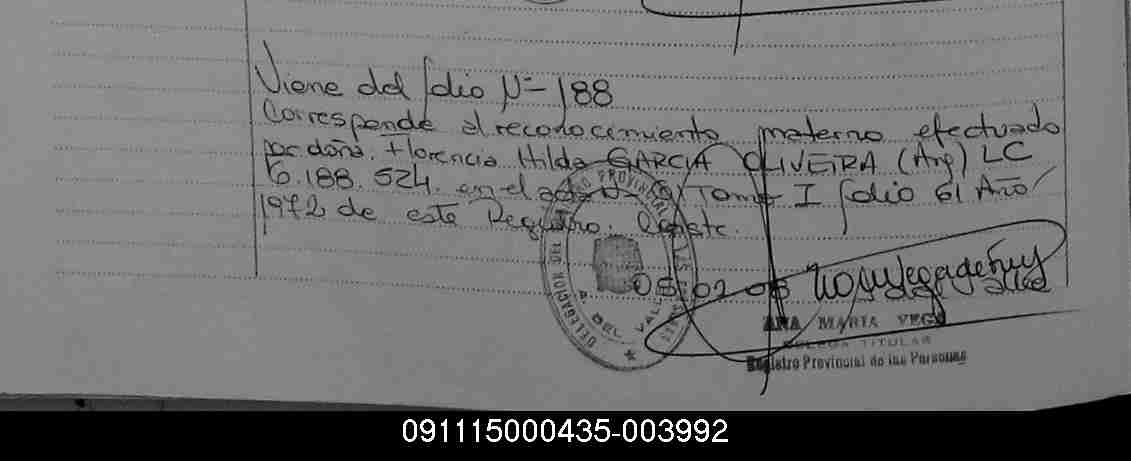 Viene del folio Nº 188
Corresponde al reconocimiento materno efectuado
por doña. Florencia Hilda GARCIA OLIVEIRA (Arg) LC
6.188.524. en el acta Tomo I folio 61 Año
1972 de este Registro. Conste.
05 02 08
ANA MARIA VEGA
TITULAR
Registro Provincial de las Personas
DELEGACION DEL VALL
PROVINCIAL
091115000435-003992